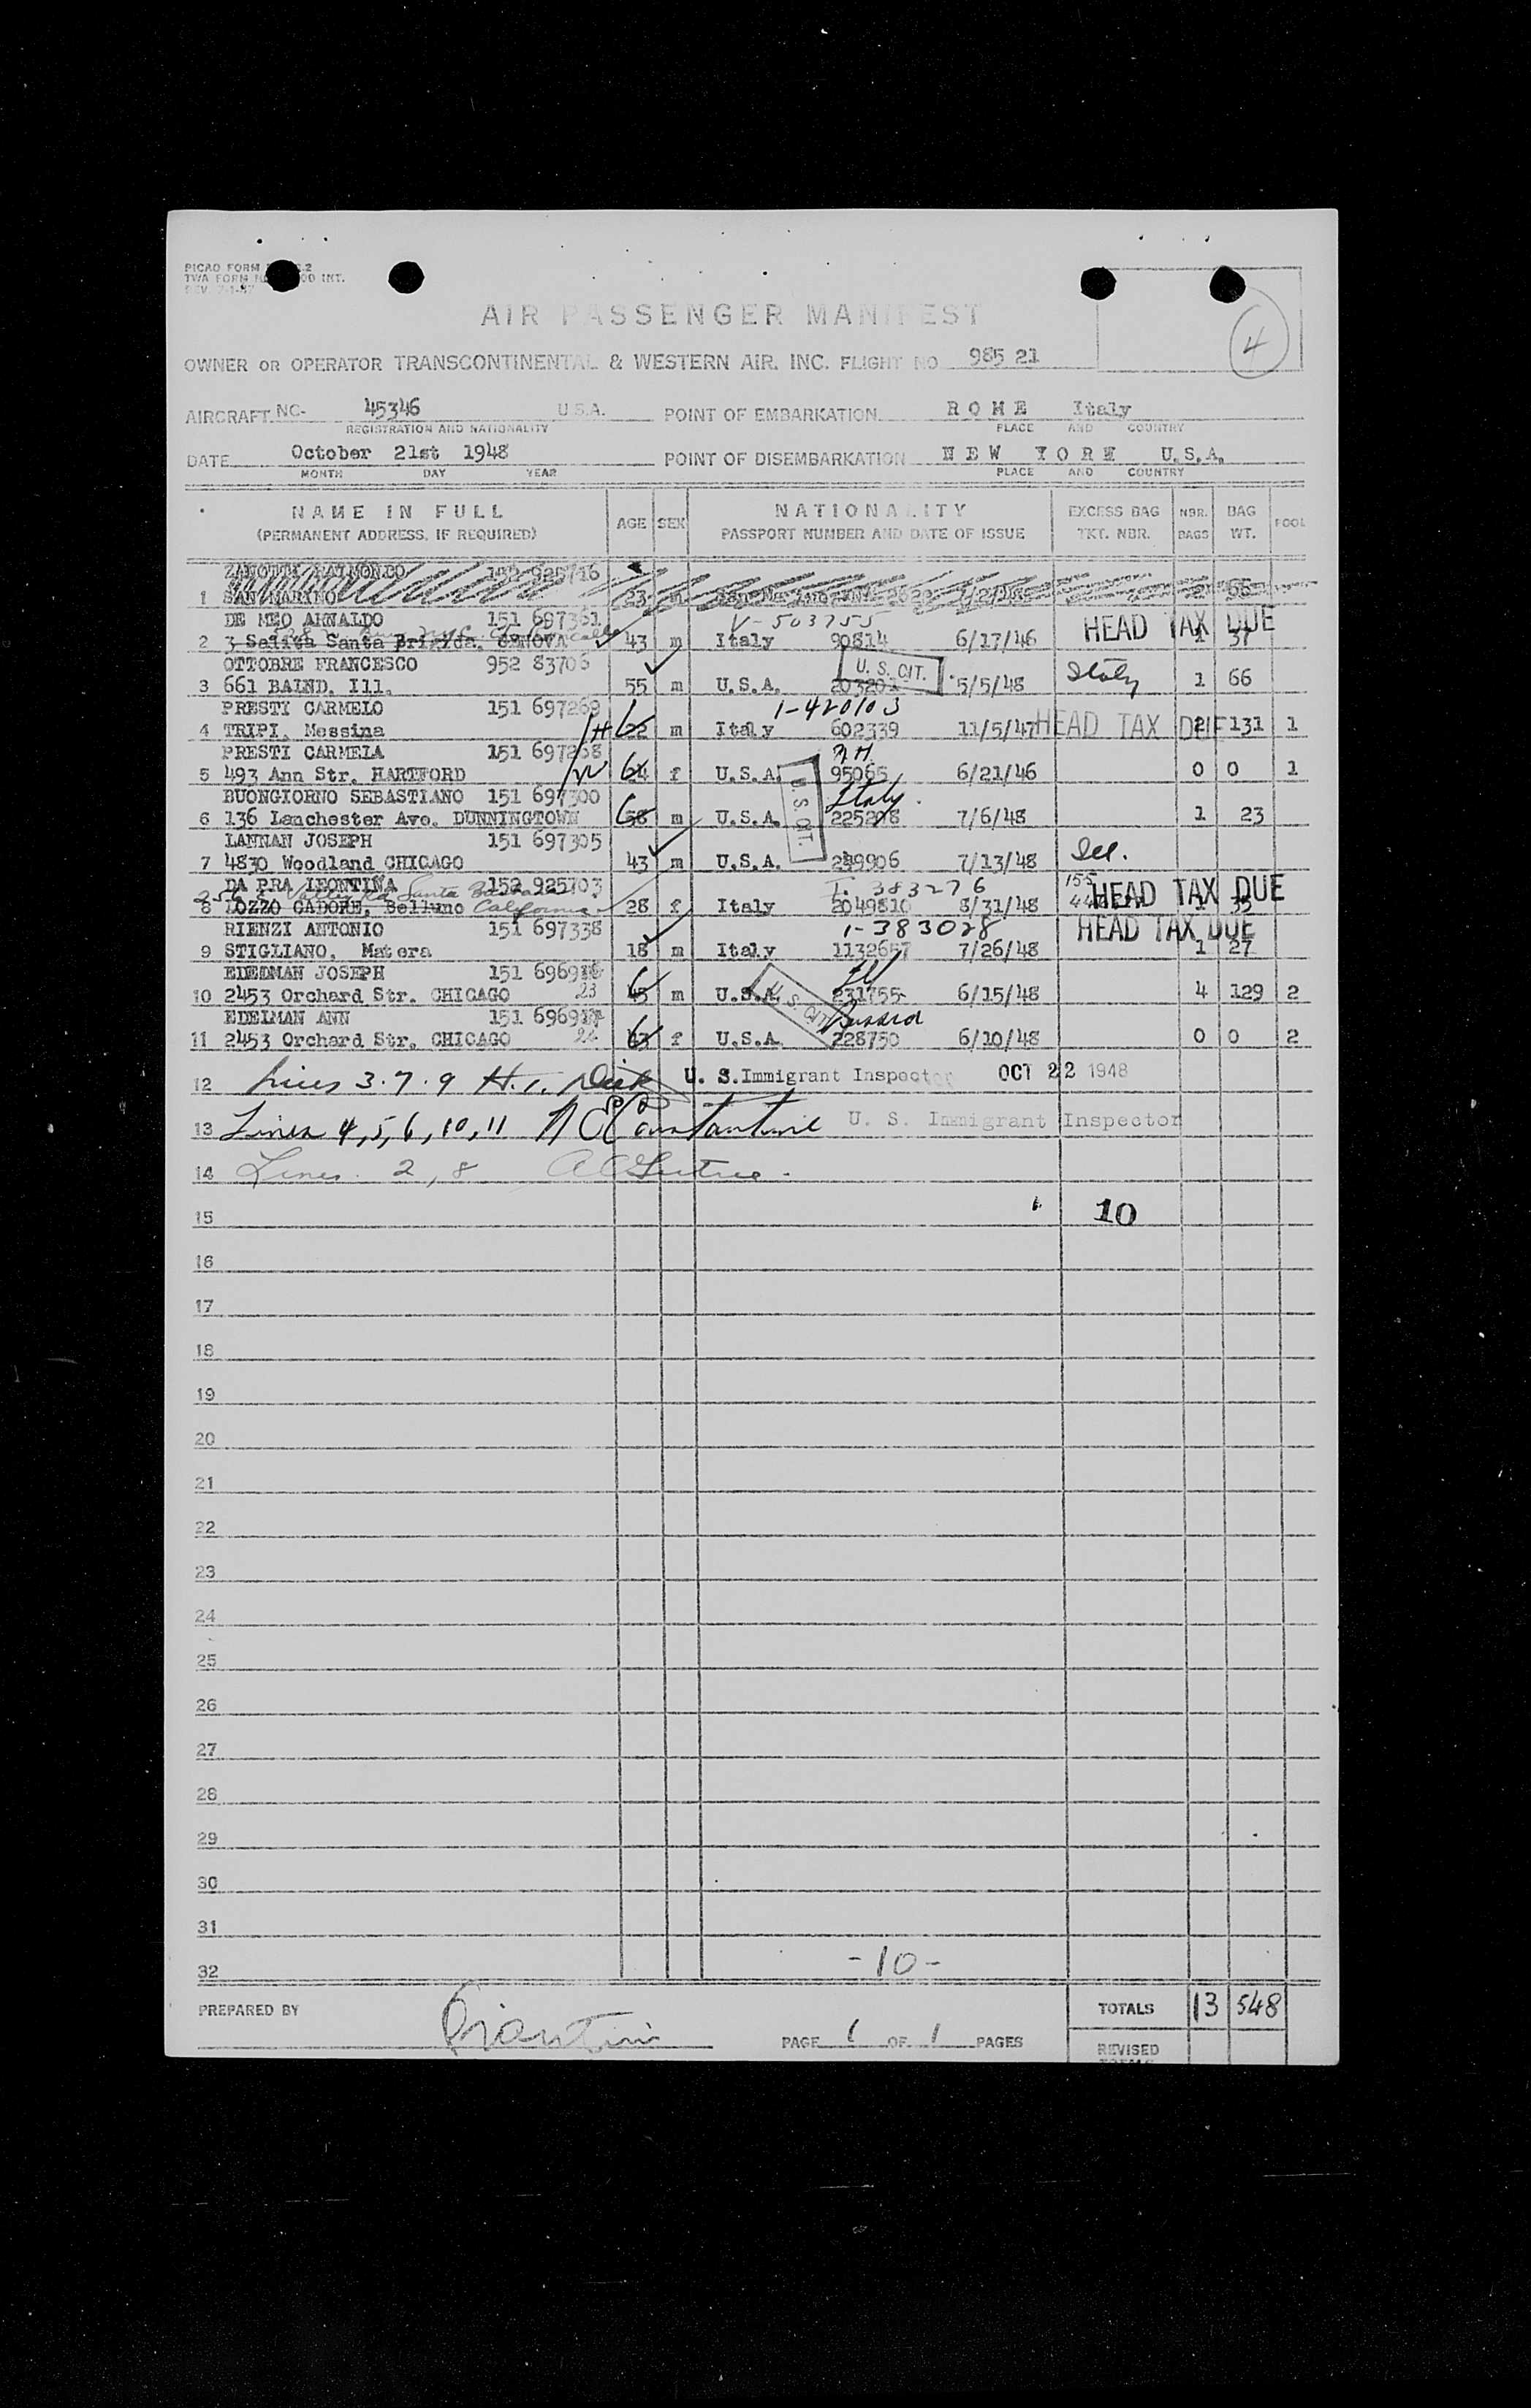 PICAO FORM
TWA FORM INT.
AIR PASSENGER MANIFEST
4
OWNER OR OPERATOR TRANSCONTINENTAL & WESTERN AIR. INC. FLIGHT NO 985 21
AIRCRAFT NC- 45346 U.S.A. POINT OF EMBARKATION ROME Italy
REGISTRATION AND NATIONALITY PLACE AND COUNTRY
DATE October 21st 1948 POINT OF DISEMBARKATION NEW YORK U.S.A.
MONTH DAY YEAR PLACE AND COUNTRY
NAME IN FULL AGE SEX NATIONALITY EXCESS BAG NBR. BAG FOOL
(PERMANENT ADDRESS, IF REQUIRED) PASSPORT NUMBER AND DATE OF ISSUE TKT. NBR. BAGS WT.
1 SAN MARINO 23 m
DE MEO ARNALDO 151 697361 V-503755 HEAD TAX DUE
2 3 Salita Santa Brigida. GENOVA 43 m Italy 90814 6/17/46 1 37
OTTOBRE FRANCESCO 952 83706 U. S. CIT. Italy
3 661 BAIND. Ill. 55 m U.S.A. 5/5/48 1 66
PRESTI CARMELO 151 697269 1-420103
4 TRIPI. Messina 22 m Italy 602339 11/5/47 HEAD TAX DUE 2 131 1
PRESTI CARMELA 151 697268
5 493 Ann Str. HARTFORD f U.S.A. 95065 6/21/46 0 0 1
BUONGIORNO SEBASTIANO 151 697300 U. S. CIT. Italy
6 136 Lanchester Ave. DUNNINGTOWN 58 m U.S.A. 225208 7/6/48 1 23
LANNAN JOSEPH 151 697305
7 4830 Woodland CHICAGO 43 m U.S.A. 7/13/48 Ill.
DA PRA LEONTINA 152 925703 383276 HEAD TAX DUE
Santa Barbara
8 LOZZO CADORE, Belluno California 28 f Italy 2049810 8/31/48 1 35
RIENZI ANTONIO 151 697338 1-383028 HEAD TAX DUE
9 STIGLIANO, Matera 18 m Italy 1132657 7/26/48 1 27
EDEDMAN JOSEPH 151 6969
10 2453 Orchard Str. CHICAGO 23 45 m U.S.A. U. S. CIT. 231755 6/15/48 4 129 2
EDEIMAN ANN 151 6969 Russia
11 2453 Orchard Str. CHICAGO 24 43 f U.S.A. 228750 6/10/48 0 0 2
12 Lines 3.7.9 U. S. Immigrant Inspector OCT 22 1948
13 Lines 4,5,6,10,11 Constantine U. S. Immigrant Inspector
14 Lines 2,8
15 10
16
17
18
19
20
21
22
23
24
25
26
27
28
29
30
31
32 -10-
PREPARED BY TOTALS 13 548
PAGE 1 OF 1 PAGES
REVISED